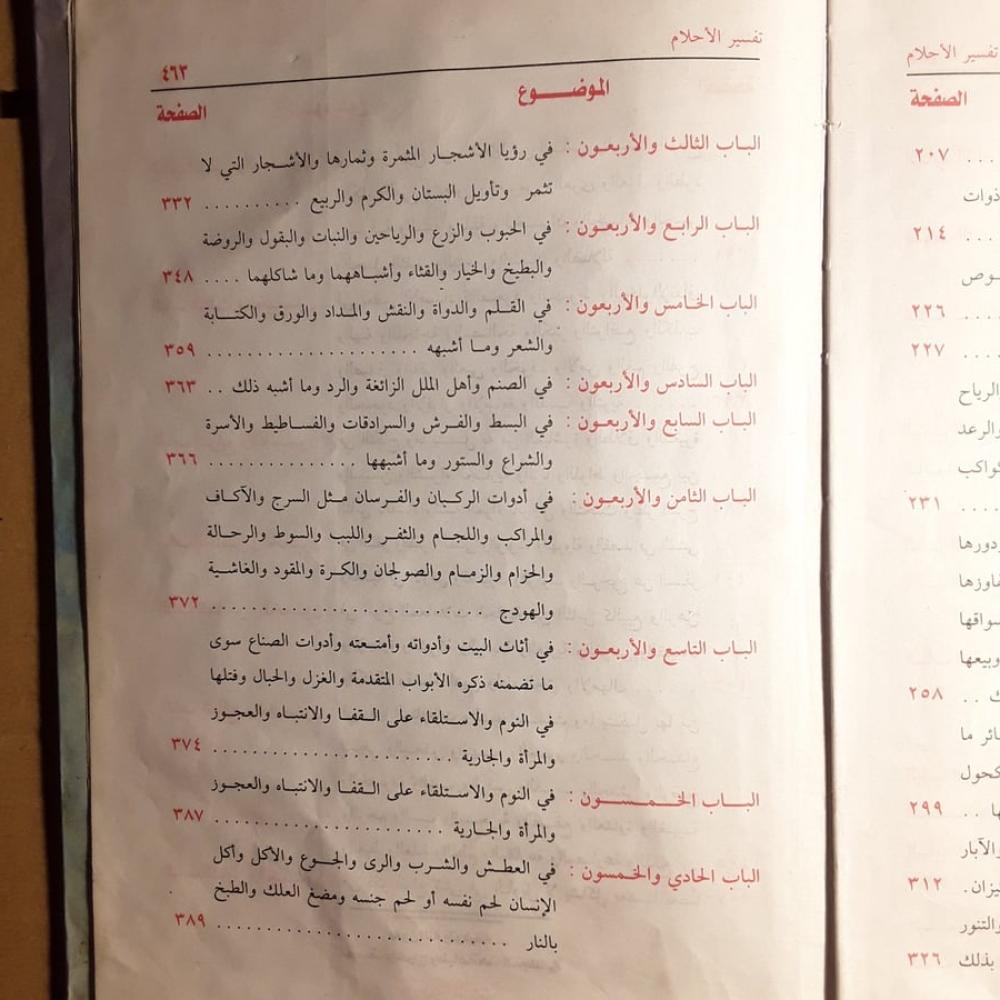 تفسير الأحلام
٤٦٣
الموضـــــوع
الصفحة
البـاب الثالث والأربعـون : في رؤيا الأشجـار المثمرة وثمارها والأشـجار التي لا
تثمر وتأويل البستان والكرم والربيع .......... ٣٣٢
البـاب الرابـع والأربعـون : في الحبوب والزرع والرياحين والنبات والبقول والروضة
والبطيخ والخيار والقثاء وأشبـاههما وما شاكلهما .... ٣٤٨
البـاب الخـامس والأربعـون : في القـلـم والدواة والنقش والمـداد والورق والكتـابة
والشعر ومـا أشبهه .................... ٣٥٩
البـاب السادس والأربعـون : في الصنم وأهل الملل الزائغة والرد وما أشبه ذلك .. ٣٦٣
البـاب السـابع والأربعـون : في البسط والفـرش والسرادقات والفسـاطيط والأسرة
والشراع والستور وما أشبهها .............. ٣٦٦
البـاب الثـامن والأربعـون : في أدوات الركبـان والفـرسان مثـل السرج والآكـاف
والمراكب واللجـام والثفـر واللبب والسوط والرحـالة
والحزام والزمـام والصولجان والكـرة والمقود والغاشيـة
والهودج .......................... ٣٧٢
البـاب التاسع والأربعـون : في أثاث البيت وأدواته وأمتـعته وأدوات الصناع سوى
ما تضمنه ذكره الأبواب المتقدمة والغزل والحبال وفتلها
في النوم والاسـتلقـاء على الـقفـا والانتبـاه والعجـوز
والمرأة والجـارية ....................... ٣٧٤
البـــاب الخـمـســـون : في النوم والاسـتلقـاء على القفـا والانتبـاه والعجـوز
والمرأة والجـارية ....................... ٣٨٧
الباب الحادي والخمسون : في العطـش والشـرب والرى والجـوع والأكل وأكل
الإنسان لحم نفسه أو لحم جنسه ومضغ العلك والطبخ
بالنار ............................ ٣٨٩
تفسير الأحلام
الصفحة
.... ٢٠٧
ذوات
... ٢١٤
... ٢٢٦
... ٢٢٧
الرياح
والرعد
.... ٢٣١
وبيعها
.. ٢٥٨
.. ٢٩٩
والآبار
. ٣١٢
والتنور
بذلك ٣٢٦